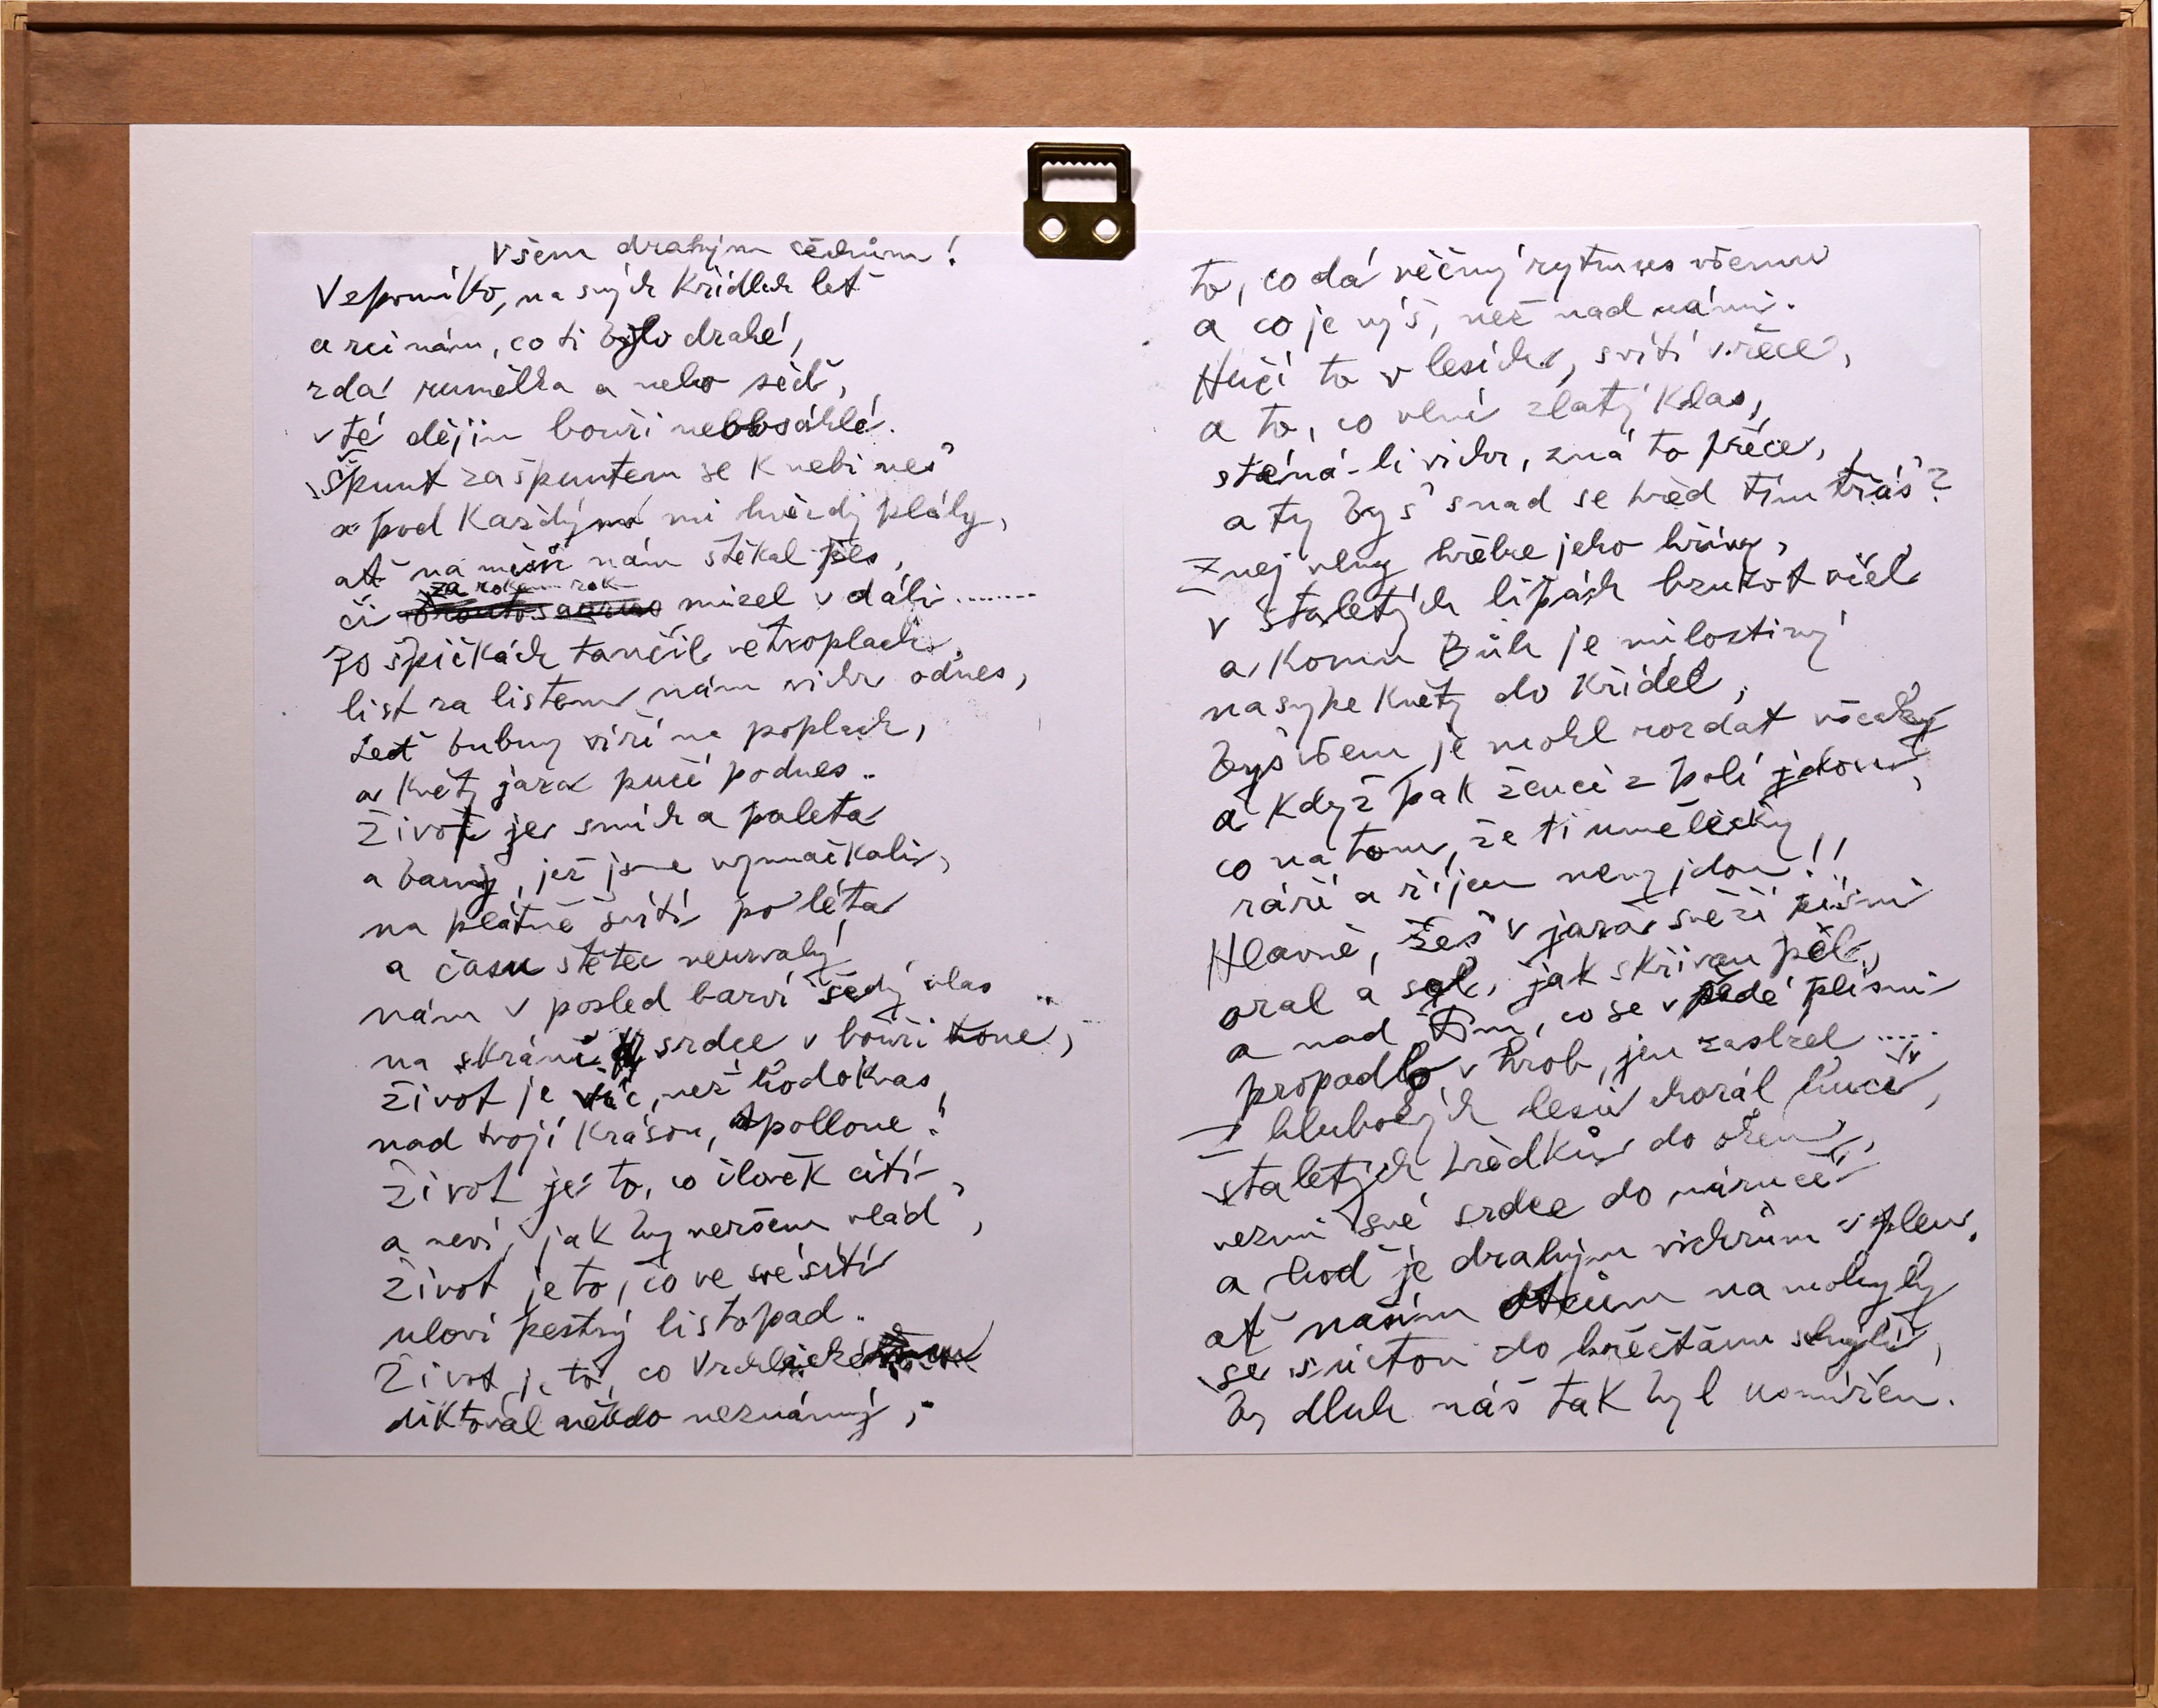 Všem drahým čechům!
Vzpomínko, na svých křídlech leť
a rci nám, co ti bylo drahé,
zdá rumělka a nebo šeď,
v té dějin bouři neobsáhlé.
Špunt za špuntem se k nebi nes'
a pod každým mi hvězdy plály,
ať na měsíc nám štěkal pes,
za rokem rok
či mizel v dáli........
Po špičkách tančil větroplach,
list za listem nám vichr odnes,
teď bubny víří na poplach,
a květy jara pučí podnes..
Život je smích a paleta
a barvy, jež jsme vymačkali,
na plátně svítí po léta
a času štětec neurvalý
nám v posled barví šedý vlas ..
na skráni, srdce v bouři tone,
život je víc, než hodokvas
nad tvojí krásou, Apollone!
Život je to, co člověk cítí,
a neví, jak by veršem vlád',
život je to, co ve své sítí
uloví pestrý listopad.
Život je to, co Vrchlické
diktoval někdo neznámý,
to, co dá věčný rytmus všemu
a co je výš, než nad námi.
Hučí to v lesích, svítí v řece,
a to, co vlní zlatý klas,
sténá-li vichr, zná to přece,
a ty bys' snad se před tím třás'?
Znej vlny hřebce jeho hřívy,
v staletých lipách bzukot včel
a komu Bůh je milostivý
nasype květy do křídel,
bys všem je mohl rozdat všecky
a když pak ženci z polí jdou,
co na tom, že ti umělecky
září a říjen nevyjdou!!
Hlavně, žes' v jara svěží písni
oral a sel, jak skřivan pěl,
a nad tím, co se v šedé plísni
propadlo v hrob, jen zaslzel .....
Z hlubokých lesů chorál hučí,
staletých předků do ozěn,
vezmi své srdce do náručí
a hoď je drahým vichrům v plen,
ať našim otcům na mohyly
se s úctou do břečťanu schýlí,
by dluh náš tak byl usmířen.